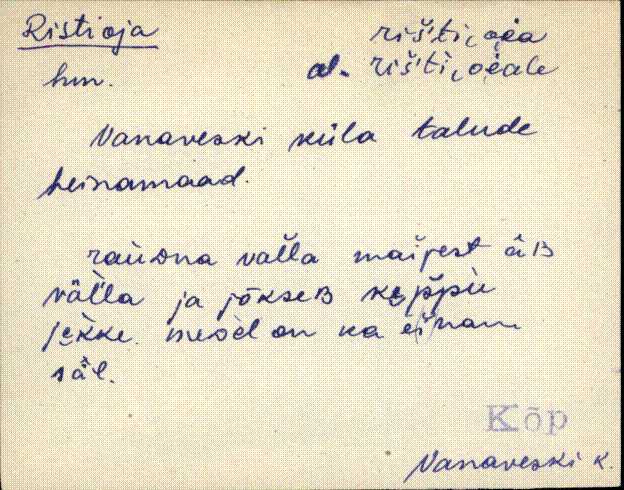 Ristioja rišti, oea
hm. al. rišti, oeale
Vanaveski küla talude
heinamaad.
rauDna valla maijest äB
välla ja jõkseB keppu
jekke. mesel on ka einam
säl.
Kõp
Vanaveski k.